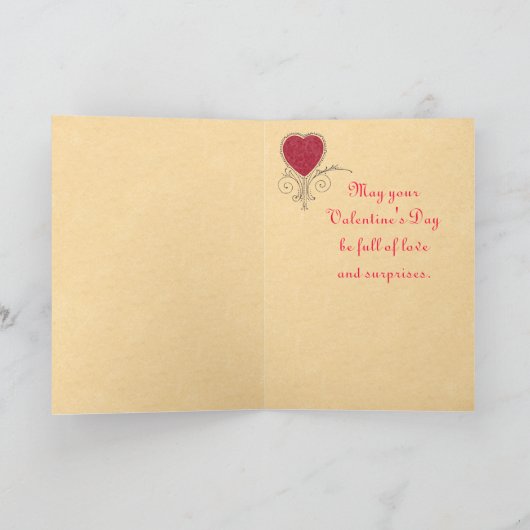 May your
Valentine's Day
be full of love
and surprises.